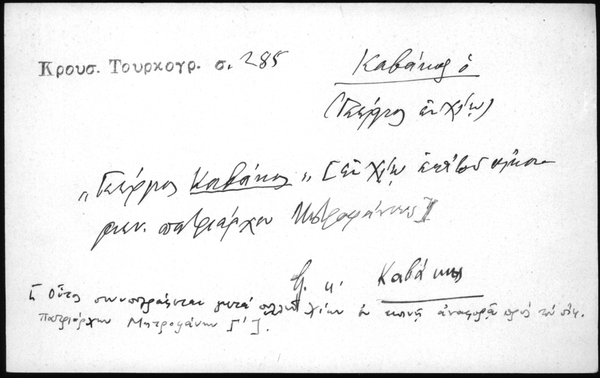 Κρουσ. Τουρκογρ. σ. 285
Καβάκος ὁ
(Γεώργιος ἐν Χίῳ)
„Γεώργιος Καβάκος„ [ἐν Χίῳ
μεν. πατριάρχου Μητροφάνους]
Καβάκης
[Οὗτος συνυπογράφεται μετὰ Χίων ἐν κοινῇ ἀναφορᾷ πρὸς τὸν οἰκ.
Πατριάρχην Μητροφάνην Γ'].